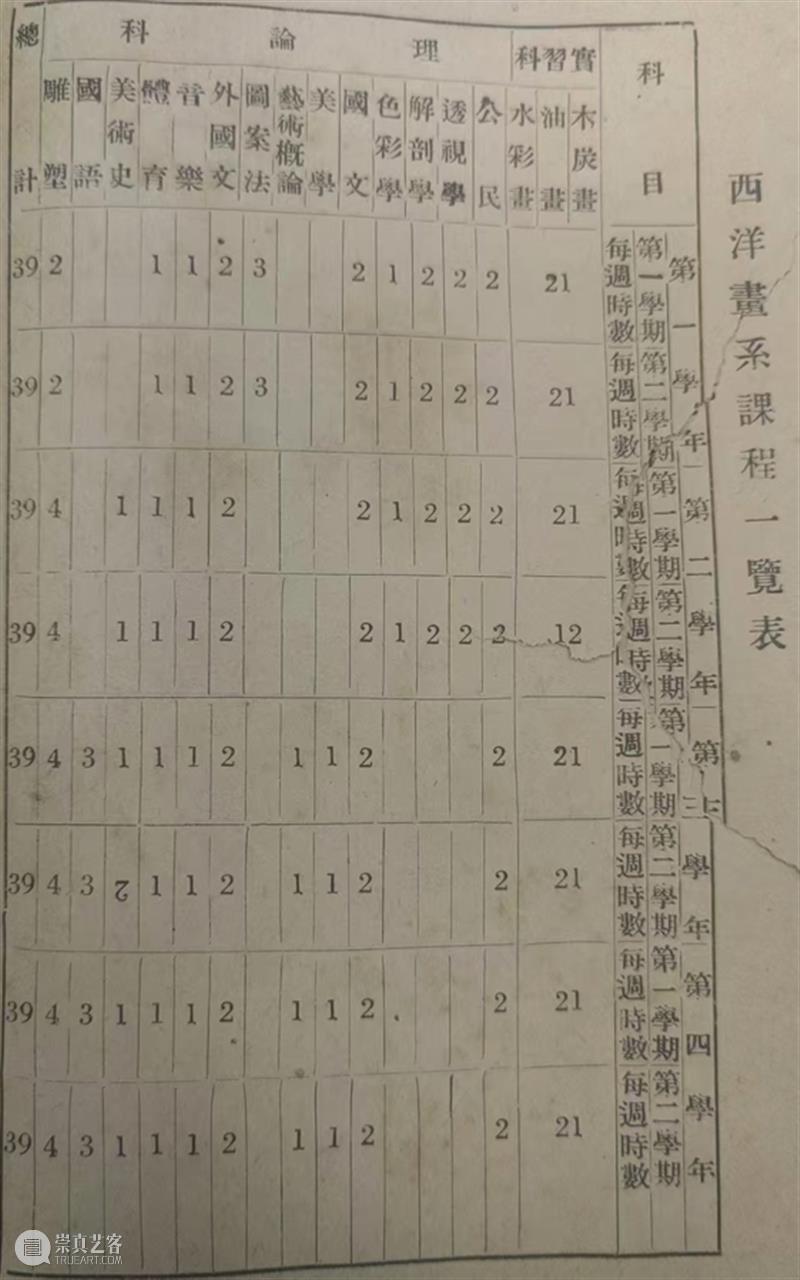 西洋畫系課程一覽表
科目
第一學年 第二學年 第三學年 第四學年
第一學期 第二學期 第一學期 第二學期 第一學期 第二學期 第一學期 第二學期
每週時數 每週時數 每週時數 每週時數 每週時數 每週時數 每週時數 每週時數
實習科
木炭畫
油畫 21 21 21 12 21 21 21 21
水彩畫
理論科
公民 2 2 2 2 2 2 2 2
透視學 2 2 2 2
解剖學 2 2 2 2
色彩學 1 1 1 1
國文 2 2 2 2 2 2 2 2
美學 1 1 1 1
藝術概論 1 1 1 1
圖案法 3 3
外國文 2 2 2 2 2 2 2 2
音樂 1 1 1 1 1 1 1 1
體育 1 1 1 1 1 1 1 1
美術史 1 1 1 2 1 1
國語 3 3 3 3
雕塑 2 2 4 4 4 4 4 4
總計 39 39 39 39 39 39 39 39
崇真艺客
TRUEART.COM